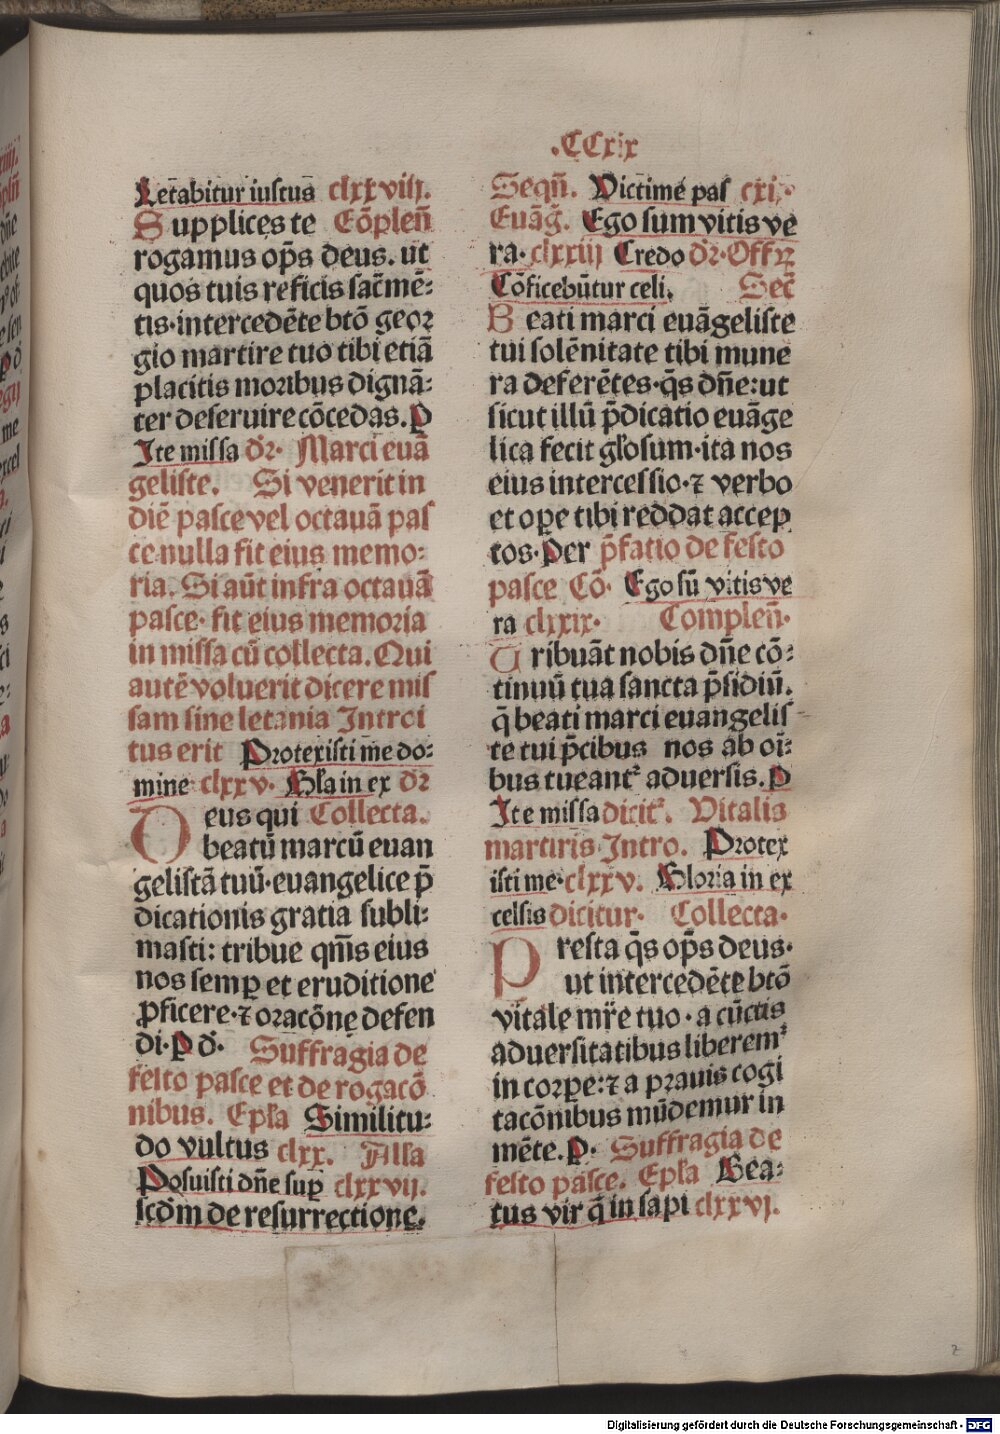 .CCxix
Letabitur iustus clxxviij.
Supplices te Cõpleñ
rogamus op̃s deus. ut
quos tuis reficis sac̃mẽ:
tis·intercedẽte btõ geor
gio martire tuo tibi etiã
placitis moribus dignã:
ter deseruire cõcedas. P
Ite missa dr̃· Marci euã
geliste. Si venerit in
diẽ pasce vel octauã pas
ce nulla fit eius memo:
ria. Si aũt infra octauã
pasce· fit eius memoria
in missa cũ collecta. Qui
autẽ voluerit dicere mis
sam sine letania Introi
tus erit Protexisti me do:
mine clxxv. Gl̃a in ex dr̃
Deus qui Collecta.
beatũ marcũ euan
gelistã tuũ·euangelice p̃
dicationis gratia subli:
masti: tribue qm̃s eius
nos semꝑ et eruditione
ꝓficere·⁊ oracõne defen
di·ꝑ d̃· Suffragia de
festo pasce et de rogacõ
nibus. Epl̃a Similitu:
do vultus clxx. Alla
Posuisti dñe suꝑ clxxvij.
scd̃m de resurrectione.
Seqñ. Victime pas cxi.
Euãg̃. Ego sum vitis ve
ra· clxxiij Credo dr̃·Offꝝ
Cõficebũtur celi. Sec̃
Beati marci euãgeliste
tui solẽnitate tibi mune
ra deferẽtes·q̃s dñe:ut
sicut illũ p̃dicatio euãge
lica fecit gl̃osum·ita nos
eius intercessio·⁊ verbo
et oꝑe tibi reddat accep
tos·Per p̃fatio de festo
pasce Cõ· Ego sũ vitis ve
ra clxxix· Compleñ·
Tribuãt nobis dñe cõ:
tinuũ tua sancta p̃sidiũ.
q̃ beati marci euangelis
te tui p̃cibus nos ab oĩ:
bus tueant᷑ aduersis. P
Ite missa dicit᷑. Vitalis
martiris Intro. Protex
isti me·clxxv. Gloria in ex
celsis dicitur· Collecta·
Presta q̃s op̃s deus·
ut intercedẽte btõ
vitale mr̃e tuo·a cũctis
aduersitatibus liberem᷑
in corꝑe:⁊ a prauis cogi
tacõnibus mũdemur in
mẽte. ꝑ· Suffragia de
festo pasce. Epl̃a Bea:
tus vir q̃ in sapi clxxvj.
z
Digitalisierung gefördert durch die Deutsche Forschungsgemeinschaft · DFG